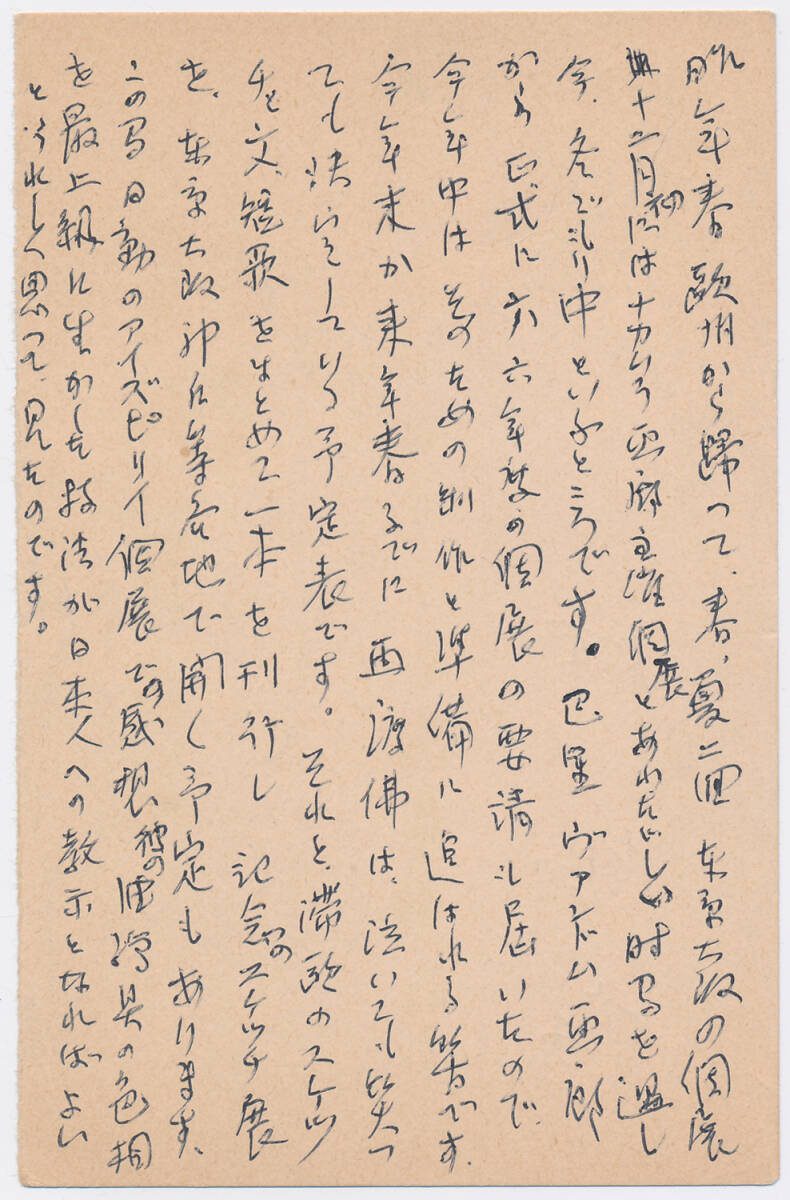 昨年春欧州から歸って、春、夏二回東京大阪の個展
十二月初にはナカムラ画廊主催個展とあわただしい時間を過し
今、冬ごもり中といふところです。巴里ヴァンドム画廊
から正式に六六年度の個展の要請も届いたので、
今年中はそのための制作と準備に追はれる筈です。
今年末か来年春までに再渡佛は、泣いても笑つ
ても決いをしている予定表です。それと、滞欧のスケッ
チと文、短歌をまとめて一本を刊行し記念のスケッチ展
を、東京大阪神戸等各地で開く予定もあります。
この間日動のアイズピリイ個展での感想、彼の油繪具の色相
を最上級に生かした技法が日本人への教示となればよい
とうれしく思って、見たのです。